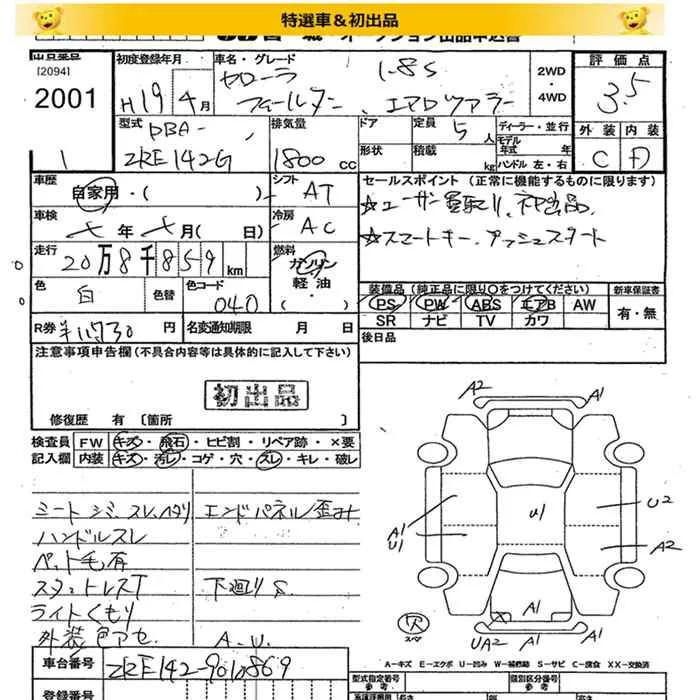 特選車＆初出品
オークション出品申込書
出品番号 初度登録年月 車名・グレード 評価点
[2094]
2001
H19 4月
カローラ 1.8S
フィールダー、エアロツアラー
2WD
・
4WD
3.5
1
型式 DBA-
ZRE142G
排気量
1800cc
ドア
形状
定員 5人
積載 kg
ディーラー・並行
モデル年式 年
ハンドル 左・右
外装 内装
C D
車歴 自家用・( )
シフト AT
セールスポイント (正常に機能するものに限ります)
☆ユーザー買取り、初出品、
☆スマートキー、プッシュスタート
車検 年 月( 日)
冷房 AC
走行 20万8千859km
燃料 ガソリン
軽油
色 白 色替 色コード 040
装備品 (純正品に限り○をつけてください)
新車保証書
PS PW ABS エアB AW
SR ナビ TV カワ
有・無
R券 ¥11,730円 名変通知期限 月 日
後日品
注意事項申告欄(不具合内容等は具体的に記入して下さい)
初出品
修復歴 有 〔箇所 〕
検査員 FW キズ・飛石・ヒビ割・リペア跡・×要
記入欄 内装 キズ・汚レ・コゲ・穴・スレ・キレ・破レ
シートシミ、スレ、ヘタリ エンドパネル歪み
ハンドルスレ
ペット毛有
スタットレスT 下廻りS
ライトくもり
外装色アセ A.W.
A2 A1
A1
U1
U1
U2
A2
A1
UA2 A1
スペア
A-キズ E-エクボ U-凹み W-補修跡 S-サビ C-腐食 XX-交換済
車台番号 ZRE142-9010869
登録番号
型式指定番号
参考
類別区分番号
参考